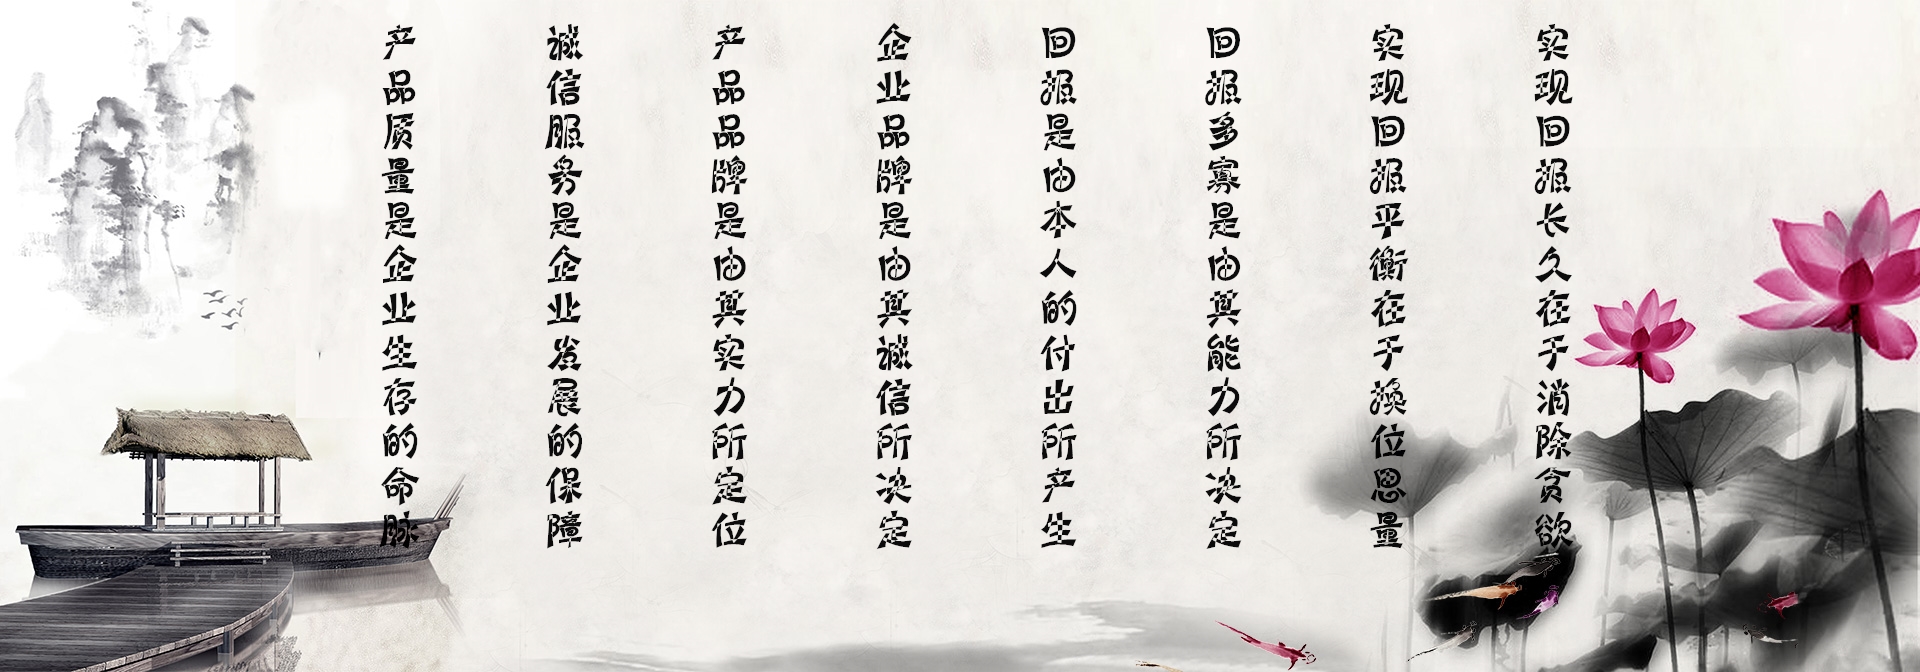 产品质量是企业生存的命脉
诚信服务是企业发展的保障
产品品牌是由其实力所定位
企业品牌是由其诚信所决定
回报是由本人的付出所产生
回报多寡是由其能力所决定
实现回报平衡在于换位思量
实现回报长久在于消除贪欲